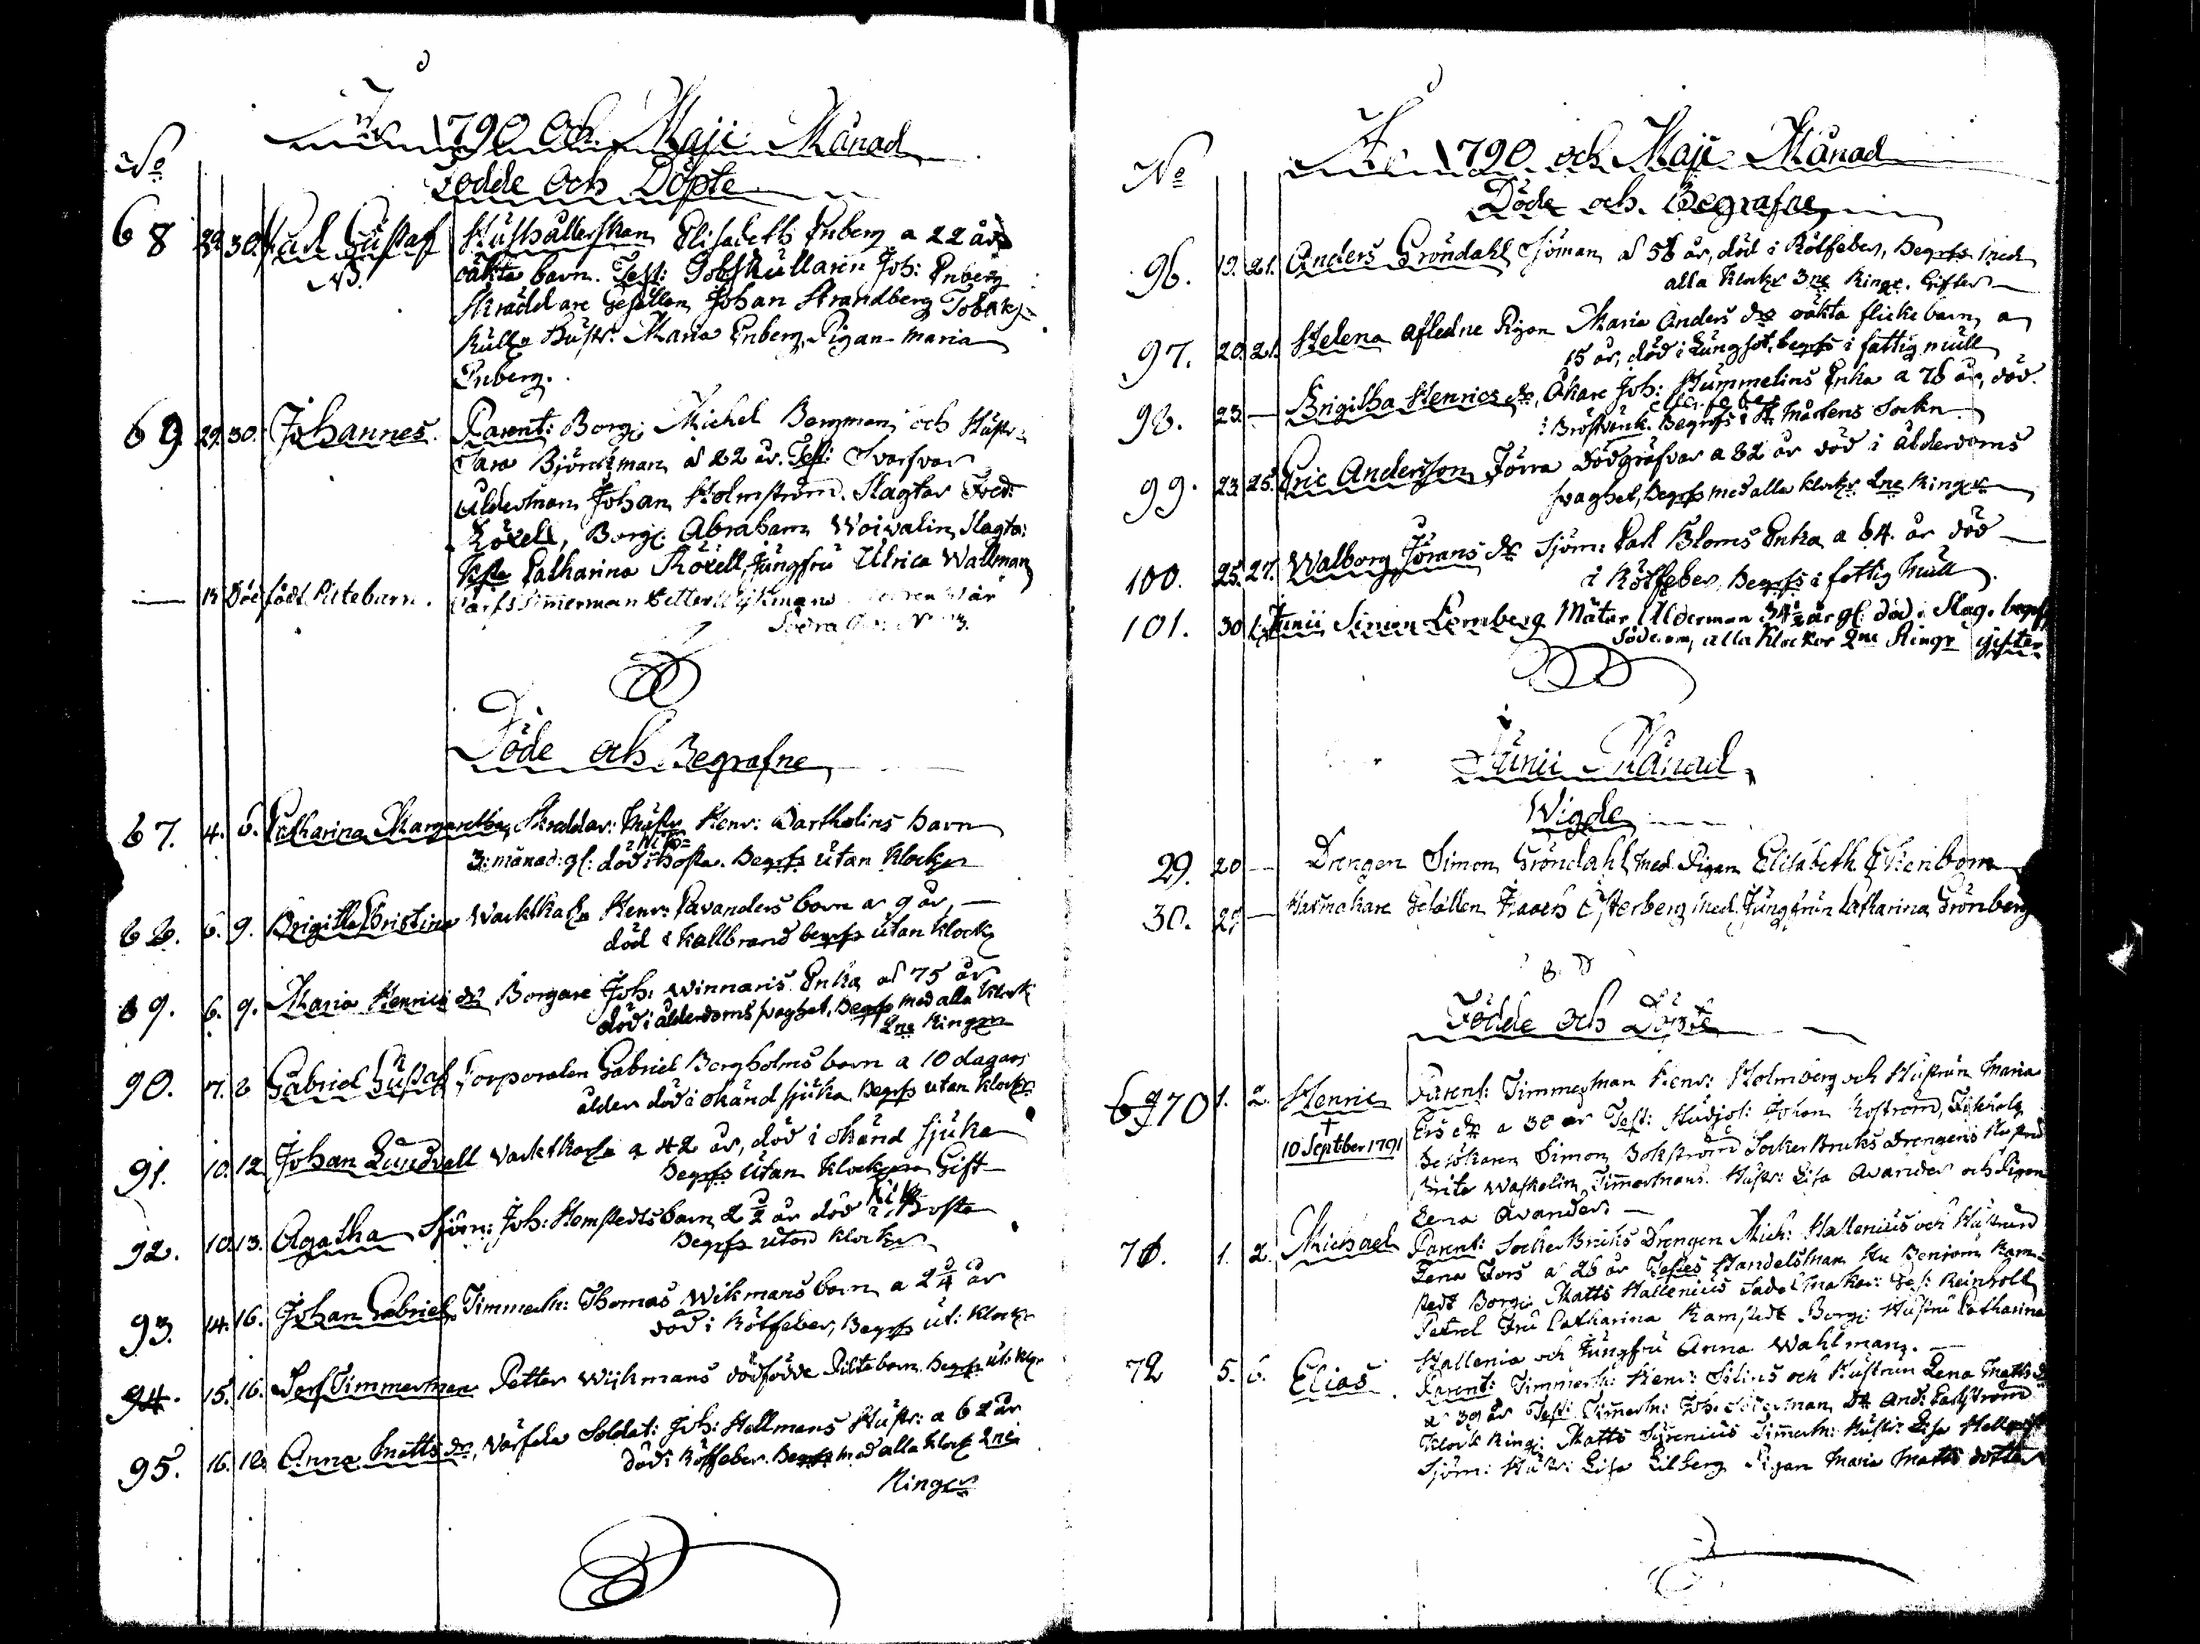 1790 Och Maji Månad
No
Födde Och Döpte
68 29. 30. Carl Gustaf Hushållerskan Elisabeth Enberg a 22 års
oäkta barn. Test: Tobakskullaren Joh: Enberg
NB.
Skräddare Gesällen Johan Strandberg Tobaks
Hustr. Maria Enberg, Pigan Maria
Enberg.
69 29. 30. Johannes. Parent: Borg: Michel Bergman och Hustr:
Sara Björckman a 22 år. Test: Svarfvar
Ålderman Johan Holmström. Slagtar Fred:
Röxell, Borg: Abraham Woivalin, Slagta:
Catharina Röxell, Jungfru Ulrica Wallman
— 15 Död född Piltebarn. Varfs Timmerman Petter Wijkmans
Södra
Döde och Begrafne
87. 4. 6. Catharina Margaretha, Skräddar: Henr: Bartholins barn
3: månad: gl: död i Hosta. Begrfs utan klockor
88. 6. 9. Brigitta Christina Wacktkarln Henr: Lavanders barn a 9 år, —
död i kallbrand begrfs utan klock
89. 6. 9. Maria Henrics dr Borgare Joh: Winnaris Enka a 75 år
död i ålderdoms svaghet, Begrfs med alla klock
2ne Ringr
90. 7. 8 Gabriel Gustaf Corporalen Gabriel Bergholms barn a 10 dagars
ålder död i okänd sjuka Begrfs utan klockr
91. 10. 12 Johan Lundvall Vacktkarln a 42 år, död i okänd sjuka
Begrfs utan klockor Gift
92. 10. 13. Agatha Sjöm: Joh: Hemstedts barn 2 1/2 år död i Hosta
Begrfs utan klockr
93. 14. 16. Johan Gabriel Timmerm: Thomas Wikmans barn a 2 1/4 år
död i Rötfeber, Begrfs ut: klockr
94. 15. 16. Varfs Timmerman Petter Wijkmans dödfödde Piltebarn Begrfs ut: klr
95. 16. 18. Anna Matts dr, Varfvade Soldat: Joh: Hallmans Hustr: a 62 år
död i Rötfeber. Begrfs med alla klock 2ne
Ringr
1790. och Maji Månad
No
Döde och Begrafne
96. 19. 21. Anders Gröndahl Sjöman a 58 år, död i Rötfeber, Begrfs med
alla klockr 3ne Ringr. Gifter —
97. 20. 21. Helena afledne Pigan Maria Anders drs oäkta flickebarn, a
15 år, död i Lungsot, begrfs i fattig mull
98. 23. — Brigitha Henrics dr, Åkare Joh: Hummelins Enka a 78 år, död
i Bröstvärk. Begrafs i St Mårtens Sockn
99. 23. 25. Eric Andersson Förra Dödgräfvar a 82 år död i ålderdoms
svaghet, Begrfs med alla klockr 2ne Ringr
100. 25. 27. Walborg Jörans dr Sjöm: Carl Bloms Enka a 64. år död —
i Rötfeber, Begrfs i fattig Mull
101. 30 1. Junii Simon Lemberg Mätar Ålderman 34 1/2 år gl: död i Slag. begrfs
Söderom, alla klockor 2ne Ringr gifter
Junii Månad
Wigde
29. 20 — Drengen Simon Gröndahl med Pigan Elisabeth Ekenbom
30. 29 — Hatmakare Gesällen Österberg med Jungfrun Catharina Grönberg
Födde och Döpte
70 1. 2. Henric Parent: Timmerman Henr: Holmberg och Hustrun Maria
Ers dr a 30 år Test: Johan
10 September 1791
Besökaren Simon Bokström Socker Bruks Drengens Hustru
Brita Waskelin, Timmermans Hustr: Lisa Avander och Pigan
Lena Avander. —
71. 1. 2. Michael Parent: Socker Bruks Drengen Mich: Hallenius och Hustrun
Lena Fors a 26 år Testes Handelsman Hr Benjam: Ram-
stedt Borg: Matts Hallenius Sadelmakar: Ges: Reinhold
Petrel Fru Catharina Ramstedt Borg: Hustru Catharina
Hallenia och Jungfru Anna Wahlman. —
72 5. 6. Elias. Parent: Timmerm: Henr: Silius och Hustrun Lena Matts dr
a 39 år Test: Timmerm: Joh: Söderman, Dr And: Carlström
Klock Ring: Matts Syrenius Timmerm: Hustr: Lisa
Sjöm: Hustr: Lisa Lilberg Pigan Maria Matts dotter